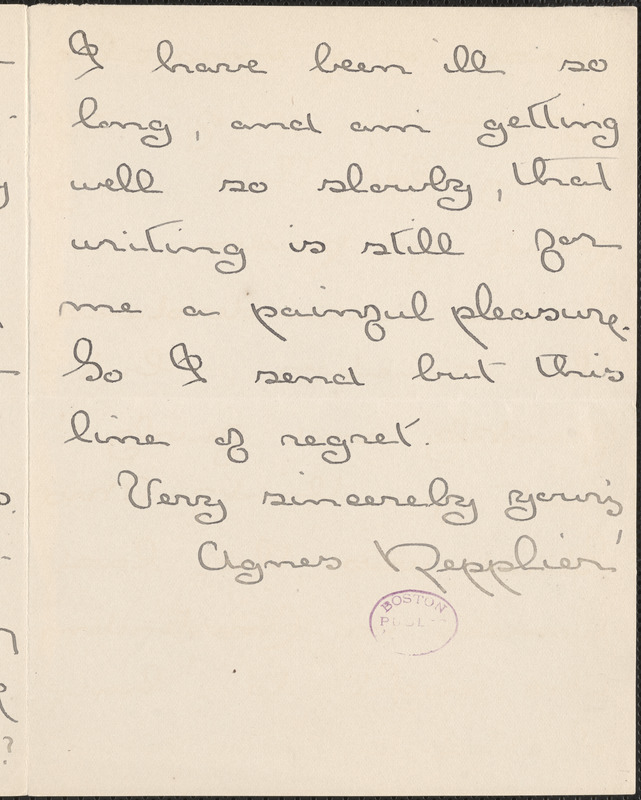 I have been ill so
long, and am getting
well so slowly, that
writing is still for
me a painful pleasure.
So I send but this
line of regret.
Very sincerely yours
Agnes Repplier
BOSTON